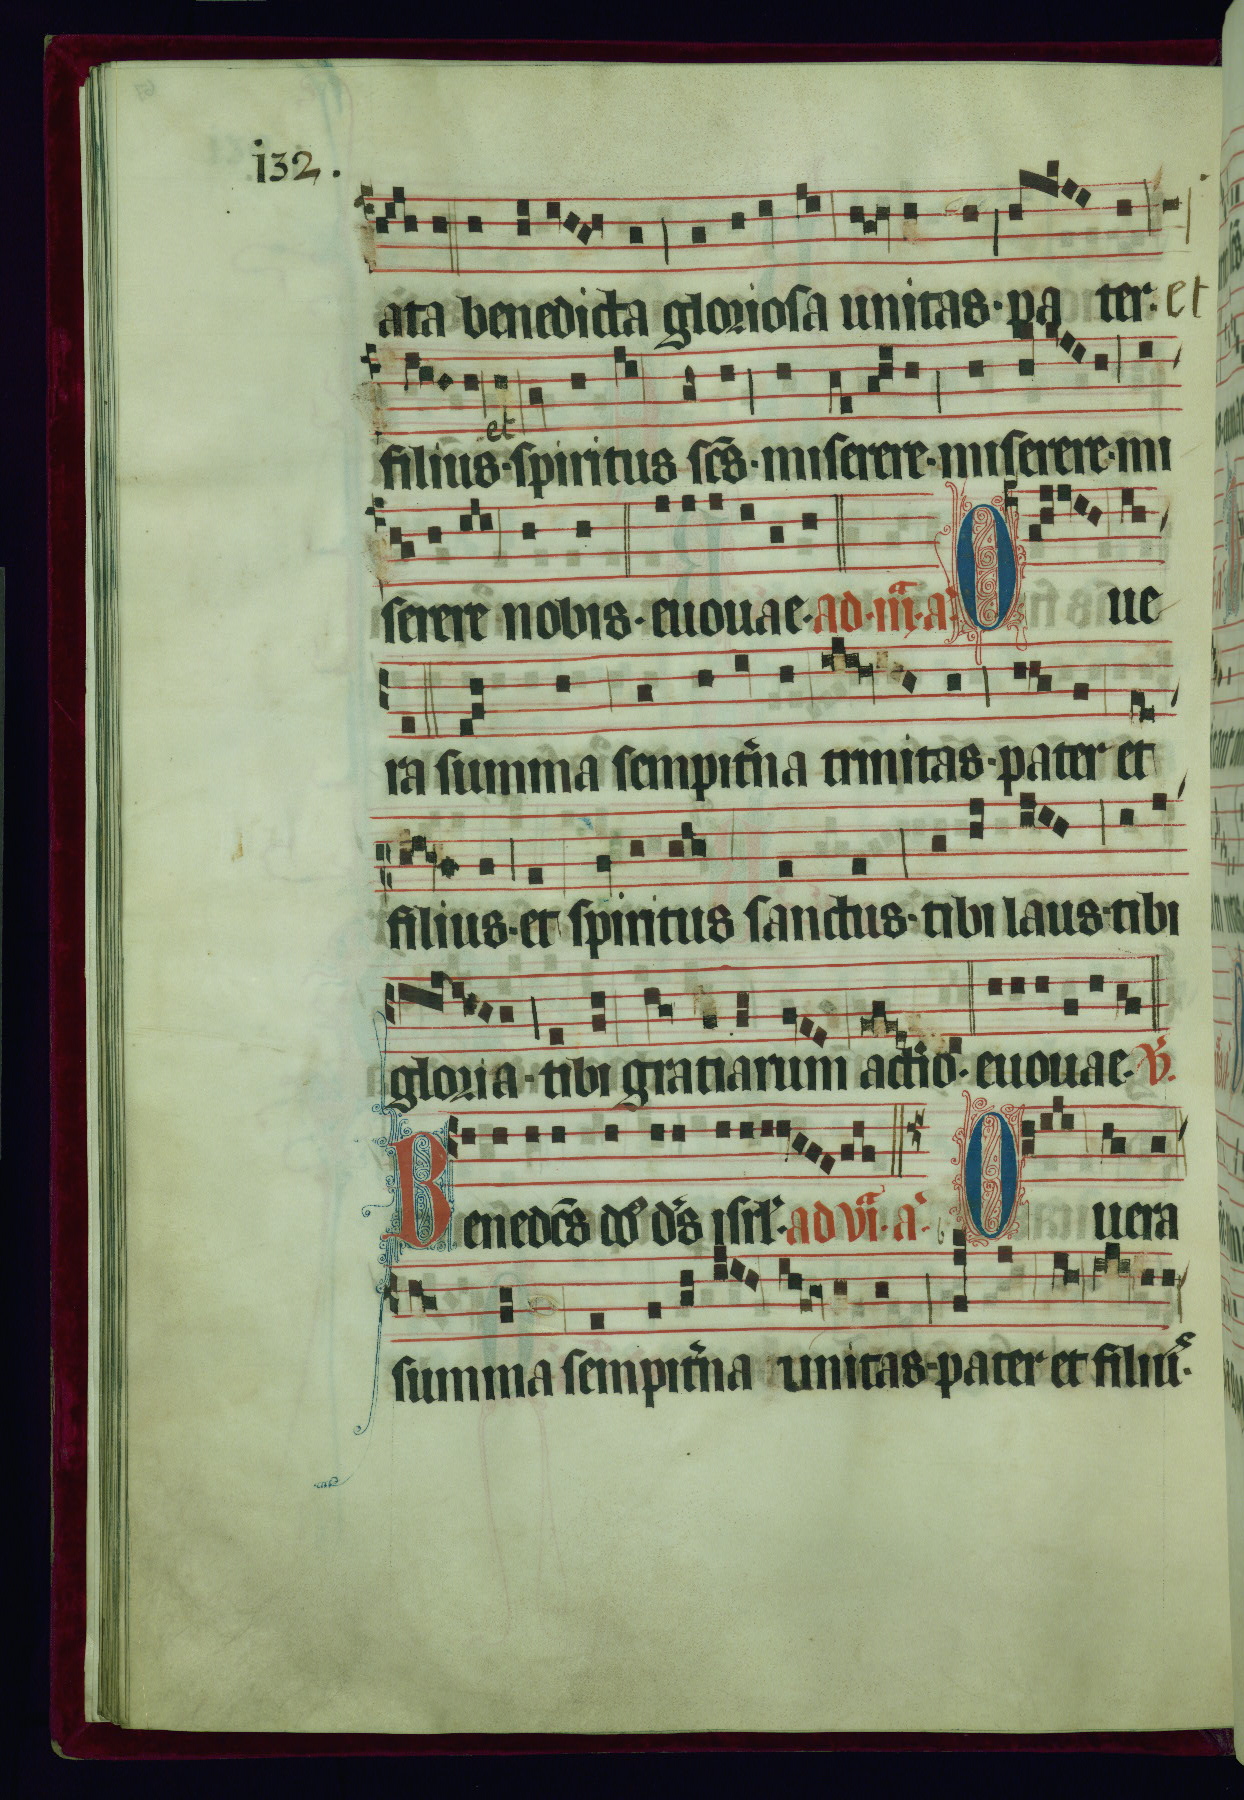 i32.
ata benedicta gloriosa unitas·pa ter· et
et
filius·spiritus scs̄·miserere·miserere·mi
serere nobis·euouae·ad·iii̅·a· O ue
ra summa sempit̾na trinitas·pater et
filius·et spiritus sanctus·tibi laus·tibi
gloria·tibi gratiarum actio·euouae·V̄.
Benedc̄s dš isrl·ad vi̅·a· O uera
summa sempit̾na unitas·pater et filiu̾·